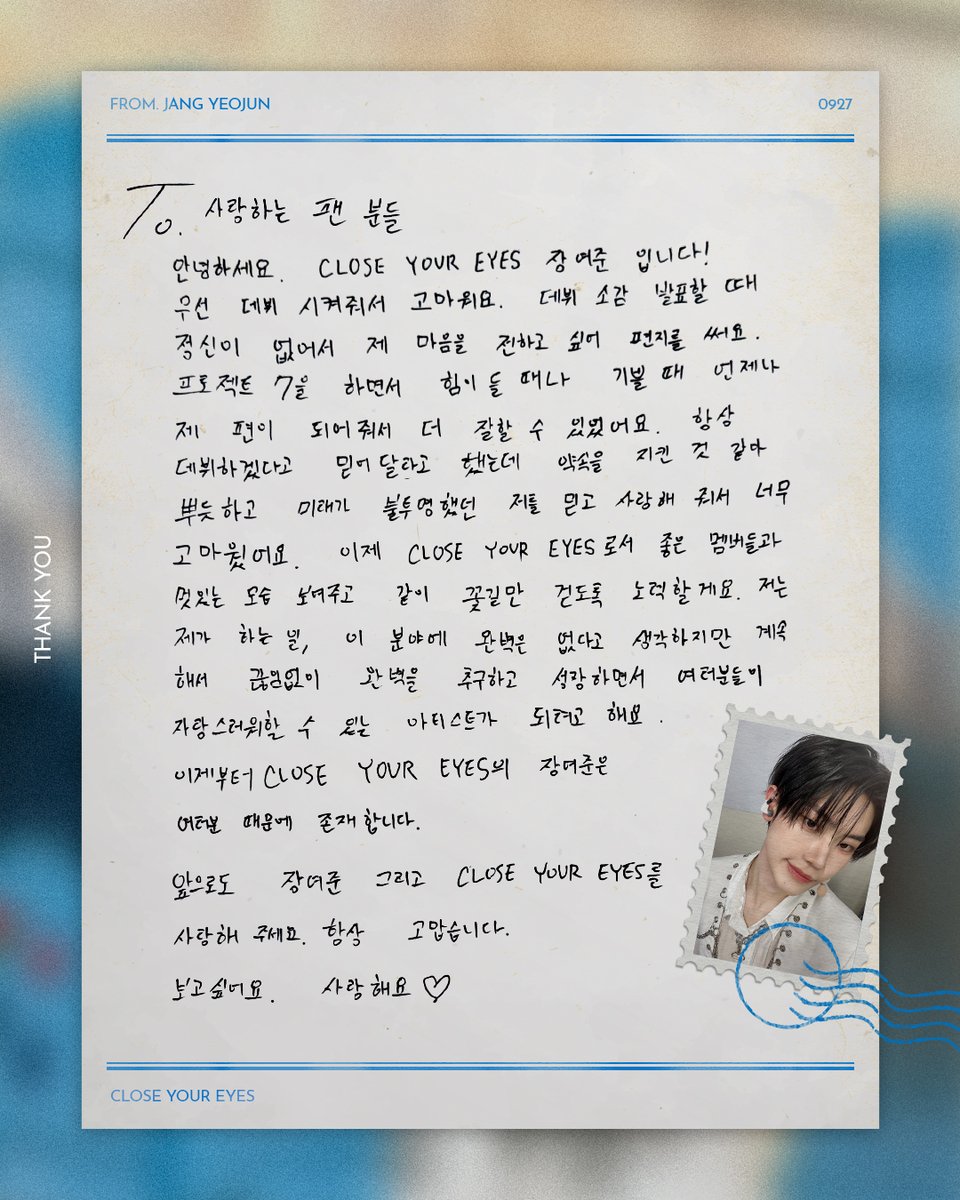 FROM. JANG YEOJUN
0927
To. 사랑하는 팬 분들
안녕하세요. CLOSE YOUR EYES 장여준 입니다!
우선 데뷔 시켜줘서 고마워요. 데뷔 소감 발표할 때
정신이 없어서 제 마음을 전하고 싶어 편지를 써요.
프로젝트 7을 하면서 힘이 들 때나 기쁠 때 언제나
제 편이 되어줘서 더 잘할 수 있었어요. 항상
데뷔하겠다고 믿어달라고 했는데 약속을 지킨 것 같아
뿌듯하고 미래가 불투명했던 저를 믿고 사랑해 줘서 너무
고마웠어요. 이제 CLOSE YOUR EYES로서 좋은 멤버들과
멋있는 모습 보여주고 같이 꽃길만 걷도록 노력할게요. 저는
제가 하는 일, 이 분야에 완벽은 없다고 생각하지만 계속
해서 끊임없이 완벽을 추구하고 성장하면서 여러분들이
자랑스러워할 수 있는 아티스트가 되려고 해요.
이제부터 CLOSE YOUR EYES의 장여준은
여러분 때문에 존재합니다.
앞으로도 장여준 그리고 CLOSE YOUR EYES를
사랑해 주세요. 항상 고맙습니다.
보고싶어요. 사랑해요♡
THANK YOU
CLOSE YOUR EYES